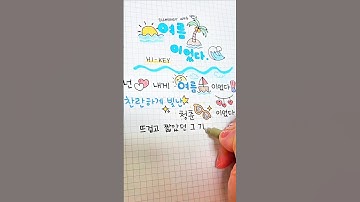 SUMMER WAS YOU
여름
이었다.
H1-KEY
넌 내게 여름 이었다
찬란하게 빛난
청춘 이었다
뜨겁고 짧았던 그 기